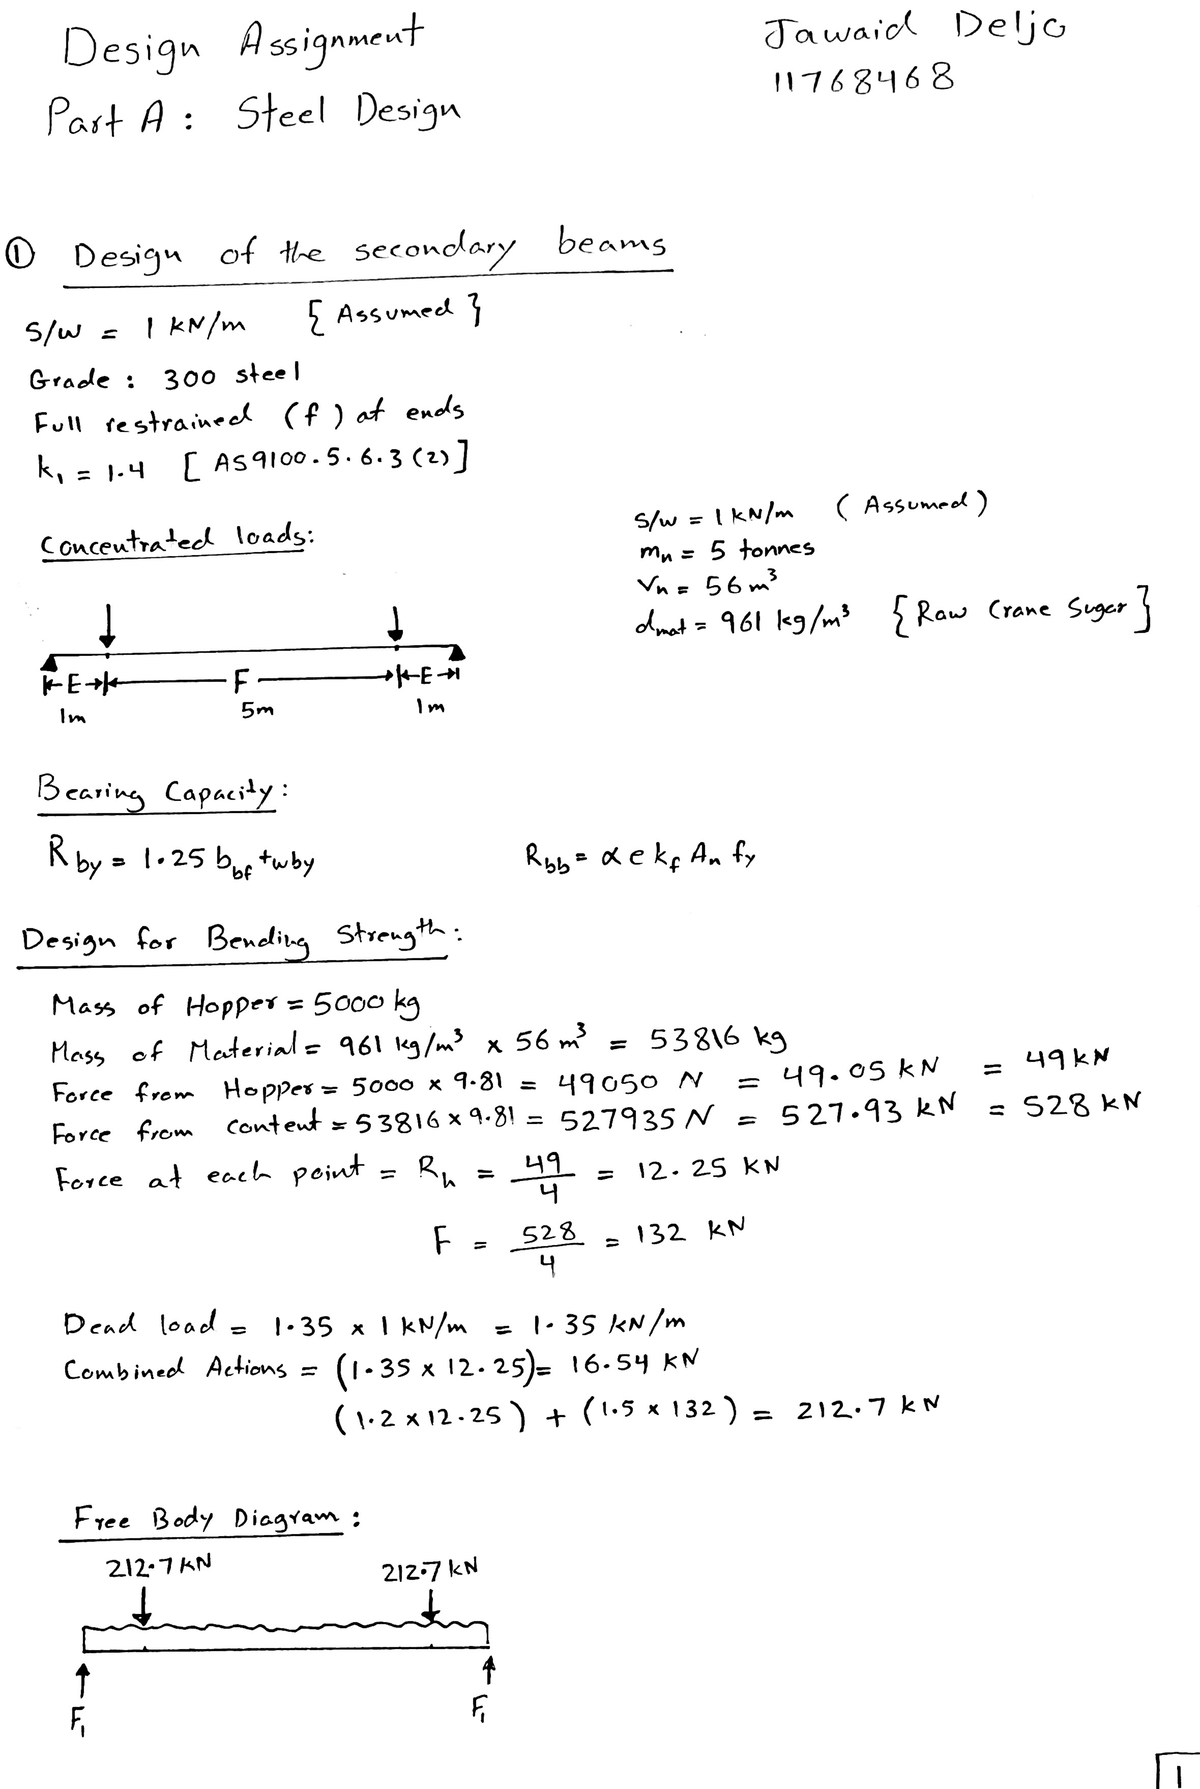 Design Assignment
Part A : Steel Design
Jawaid Deljo
11768468
① Design of the secondary beams
S/W = 1 KN/m { Assumed }
Grade : 300 steel
Full restrained (f) at ends
k₁ = 1.4 [ AS9100.5.6.3(2)]
Concentrated loads:
S/W = 1 KN/m ( Assumed )
mₕ = 5 tonnes
Vₕ = 56 m³
dmat = 961 kg/m³ { Raw Crane Suger }
E F E
1m 5m 1m
Bearing Capacity :
Rby = 1.25 bbf twby
Rbb = αc kf An fy
Design for Bending Strength :
Mass of Hopper = 5000 kg
Mass of Material = 961 kg/m³ x 56 m³ = 53816 kg
Force from Hopper = 5000 x 9.81 = 49050 N = 49.05 kN = 49 kN
Force from content = 53816 x 9.81 = 527935 N = 527.93 kN = 528 kN
Force at each point = Rₕ = 49/4 = 12.25 KN
F = 528/4 = 132 KN
Dead load = 1.35 x 1 KN/m = 1.35 kN/m
Combined Actions = (1.35 x 12.25) = 16.54 KN
(1.2 x 12.25) + (1.5 x 132) = 212.7 kN
Free Body Diagram :
212.7 KN 212.7 kN
F₁ F₁
1